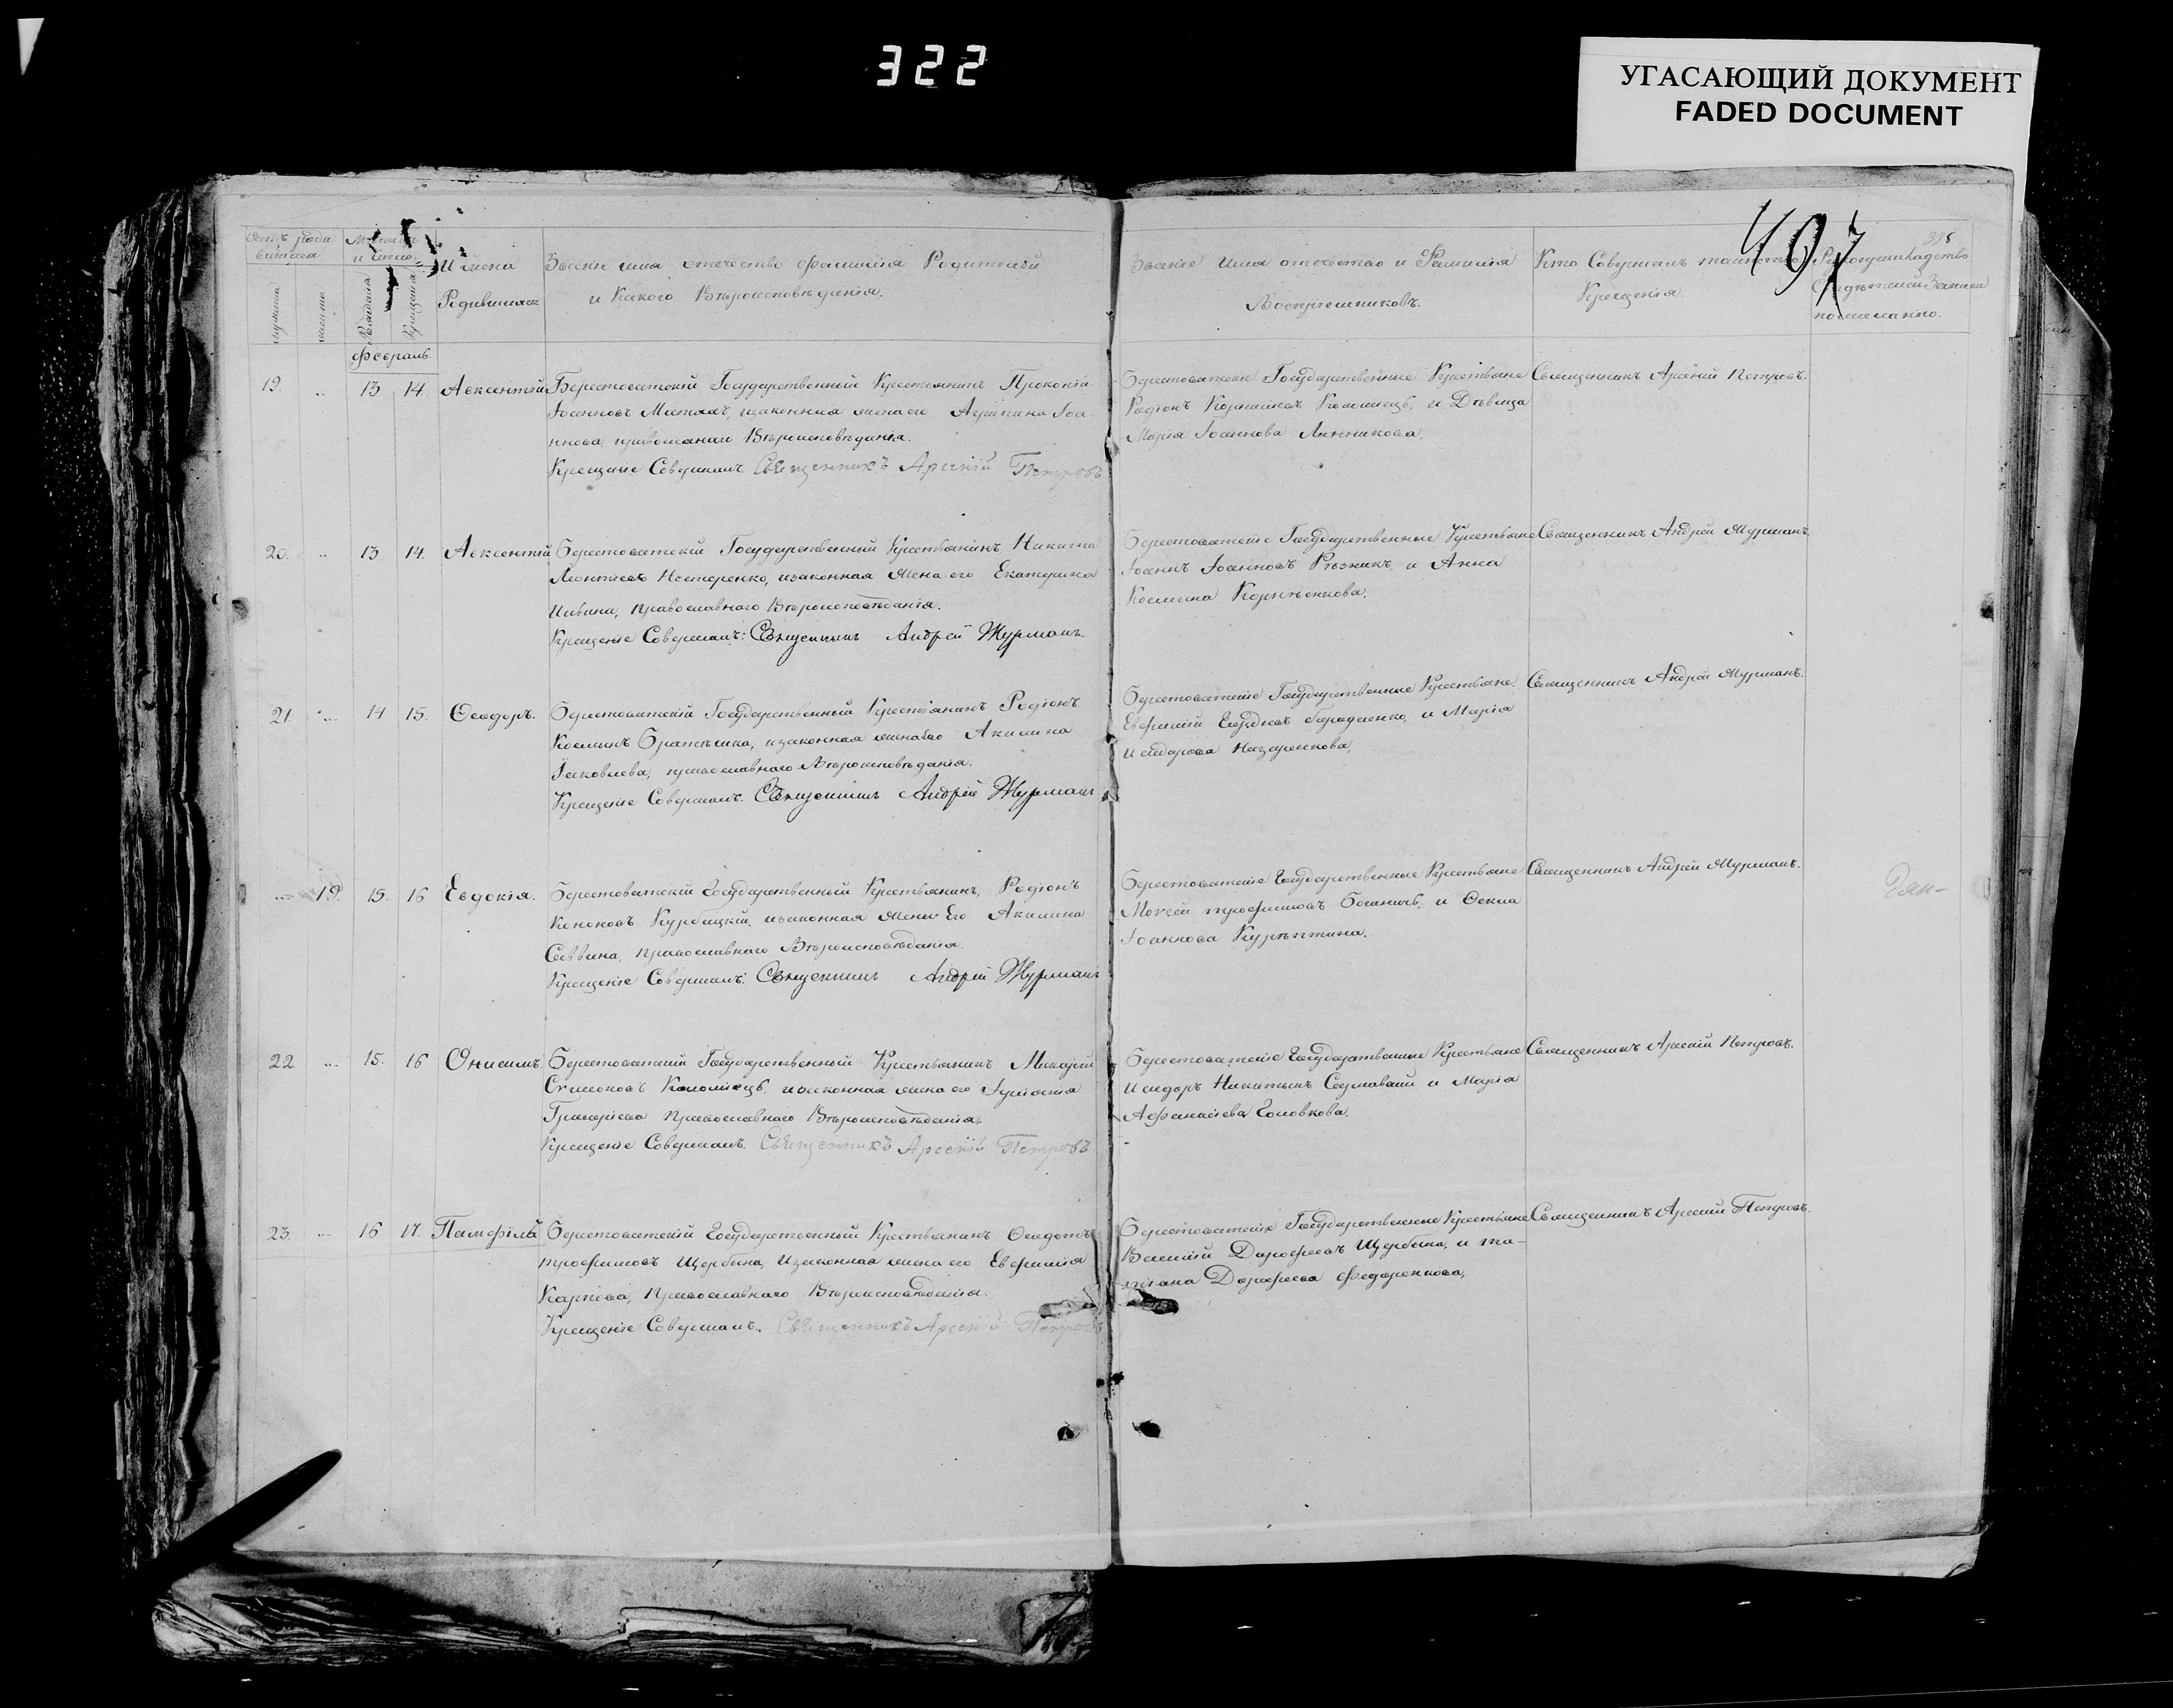 322
УГАСАЮЩИЙ ДОКУМЕНТ
FADED DOCUMENT
497
Счетъ роди
вшихся
Мѣсяцъ
и число
Имена
Родившихся
Званіе имя отечество фамилія Родителей
и Какого Вѣроисповѣданія.
Званіе Имя отечество и Фамилія
Воспріемниковъ.
Кто Совершалъ таинство
Крещенія.
Рукоприкладство
Свидѣтелей Записи
по желанію.
февраль
19. 13 14 Авксентій Берестоватскій Государственный Крестьянинъ Прокопій
Іоанновъ, изаконная жена его Іоа-
ннова, православнаго Вѣроисповѣданія.
Крещеніе Совершалъ Священникъ Арсеній Петровъ
Берестоватскіе Государственные Крестьяне
Родіонъ Коломіецъ, и Дѣвица
Марія Іоаннова
Священникъ Арсеній Петровъ.
20. 13 14. Авксентій Берестоватскій Государственный Крестьянинъ Никита
Леонтьевъ Нестеренко, изаконная Жена его Екатерина
Ильина, Православнаго Вѣроисповѣданія.
Крещеніе Совершалъ: Священникъ Андрей Журманъ.
Берестоватскіе Государственные Крестьяне
Іоаннъ Іоанновъ Рѣзникъ, и Анна
Косьмина
Священникъ Андрей Журманъ.
21. 14 15. Ѳеодоръ. Берестоватскій Государственный Крестьянинъ Родіонъ
Косминъ, изаконная жена его Акилина
Іаковлева, православнаго Вѣроисповѣданія.
Крещеніе Совершалъ. Священникъ Андрей Журманъ
Берестоватскіе Государственные Крестьяне.
Евфимій и Марія
Исидорова Назаренкова,
Священникъ Андрей Журманъ.
19. 15. 16 Евдокія. Берестоватскій Государственный Крестьянинъ, Родіонъ
Кононовъ Курбацкій, изаконная Жена Его Акилина
Саввина, православнаго Вѣроисповѣданія.
Крещеніе Совершалъ: Священникъ Андрей Журманъ
Берестоватскіе Государственные Крестьяне
Моѵсей трофимовъ и Ѳекла
Іоаннова
Священникъ Андрей Журманъ.
22 15. 16 Онисимъ. Берестоватскій Государственный Крестьянинъ
Симоновъ Коломіецъ, изаконная жена его
Григоріева Православнаго Вѣроисповѣданія,
Крещеніе Совершалъ. Священникъ Арсеній Петровъ
Берестоватскіе Государственные Крестьяне
Исидоръ Никитинъ и Марія
Афанасіева Головкова.
Священникъ Арсеній Петровъ.
23. 16 17. Памфилъ Берестоватскій Государственный Крестьянинъ Ѳеодотъ
трофимовъ Щербина, Изаконная жена его Евфимія
Карпова, Православнаго Вѣроисповѣданія.
Крещеніе Совершалъ. Священникъ Арсеній Петровъ
Берестоватскіе Государственные Крестьяне
Василій Дорофеевъ Щербина, и та-
тіана Дорофеева Федоренкова,
Священникъ Арсеній Петровъ.